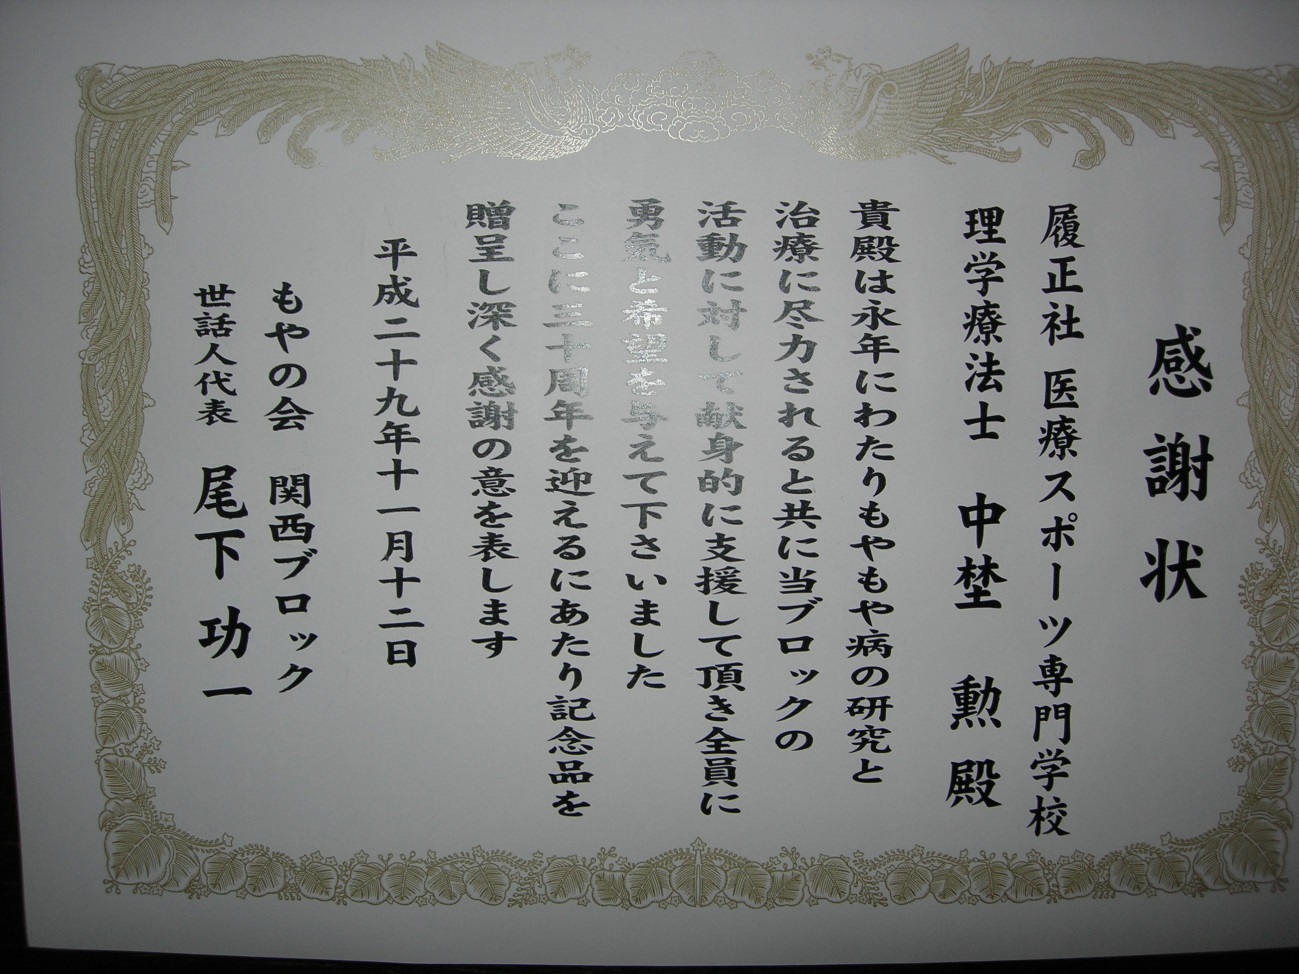 感謝状
履正社 医療スポーツ専門学校
理学療法士 中埜 勲 殿
貴殿は永年にわたりもやもや病の研究と
治療に尽力されると共に当ブロックの
活動に対して献身的に支援して頂き全員に
勇気と希望を与えて下さいました
ここに三十周年を迎えるにあたり記念品を
贈呈し深く感謝の意を表します
平成二十九年十一月十二日
もやの会 関西ブロック
世話人代表 尾下 功一